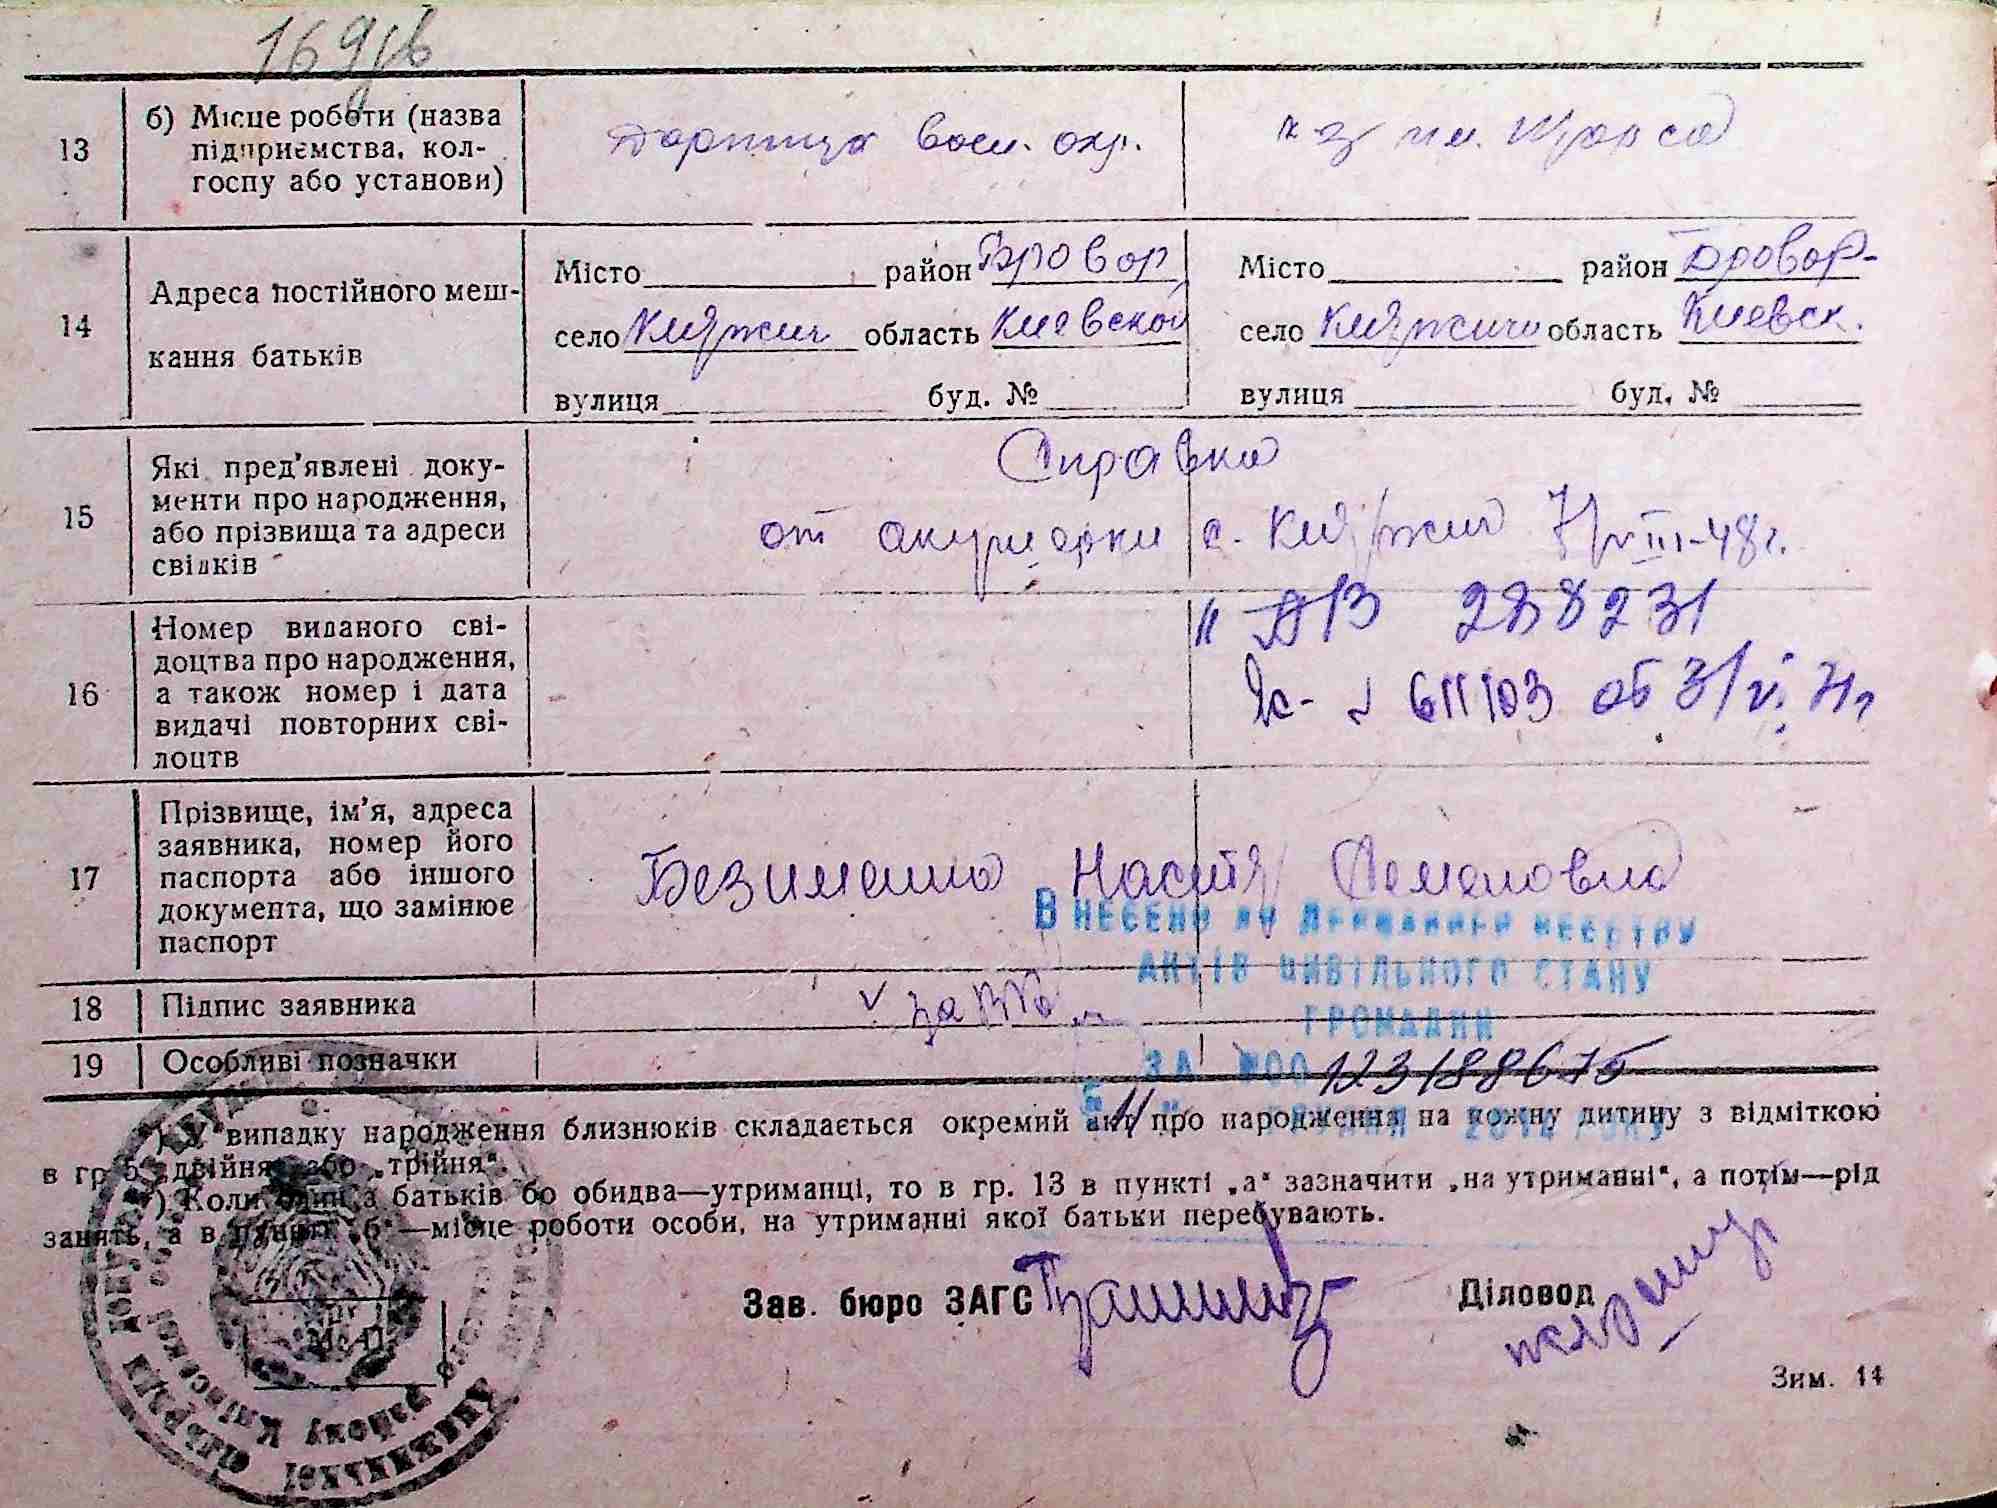 169
13 б) Місце роботи (назва підприємства, колгоспу або установи)
Дарница воен. охр.
к-з им. Щорса
14 Адреса постійного меш-
кання батьків
Місто район Бровар
село Княжич область Киевской
вулиця буд. №
Місто район Бровар-
село Княжичи область Киевск.
вулиця буд. №
15 Які пред'явлені доку-
менти про народження,
або прізвища та адреси
свідків
Справка
от акушерки с. Княжич 7/VIII-48г.
16 Номер виданого сві-
доцтва про народження,
а також номер і дата
видачі повторних сві-
доцтв
288231
611103 от 3/VI
17 Прізвище, ім'я, адреса
заявника, номер його
паспорта або іншого
документа, що замінює
паспорт
Безименна Настя Семеновна
Внесено до Державного реєстру
актів цивільного стану
громадян
за №00 123188675
11 грудня 2012 року
18 Підпис заявника
19 Особливі позначки
*) У випадку народження близнюків складається окремий акт про народження на кожну дитину з відміткою
в гр. 5 „двійня" або „трійня".
**) Коли один з батьків бо обидва—утриманці, то в гр. 13 в пункті „а" зазначити „на утриманні", а потім—рід
занять, а в пункті „б"—місце роботи особи, на утриманні якої батьки перебувають.
Зав. бюро ЗАГС
Діловод
М. П.
Зим. 14
району Київської